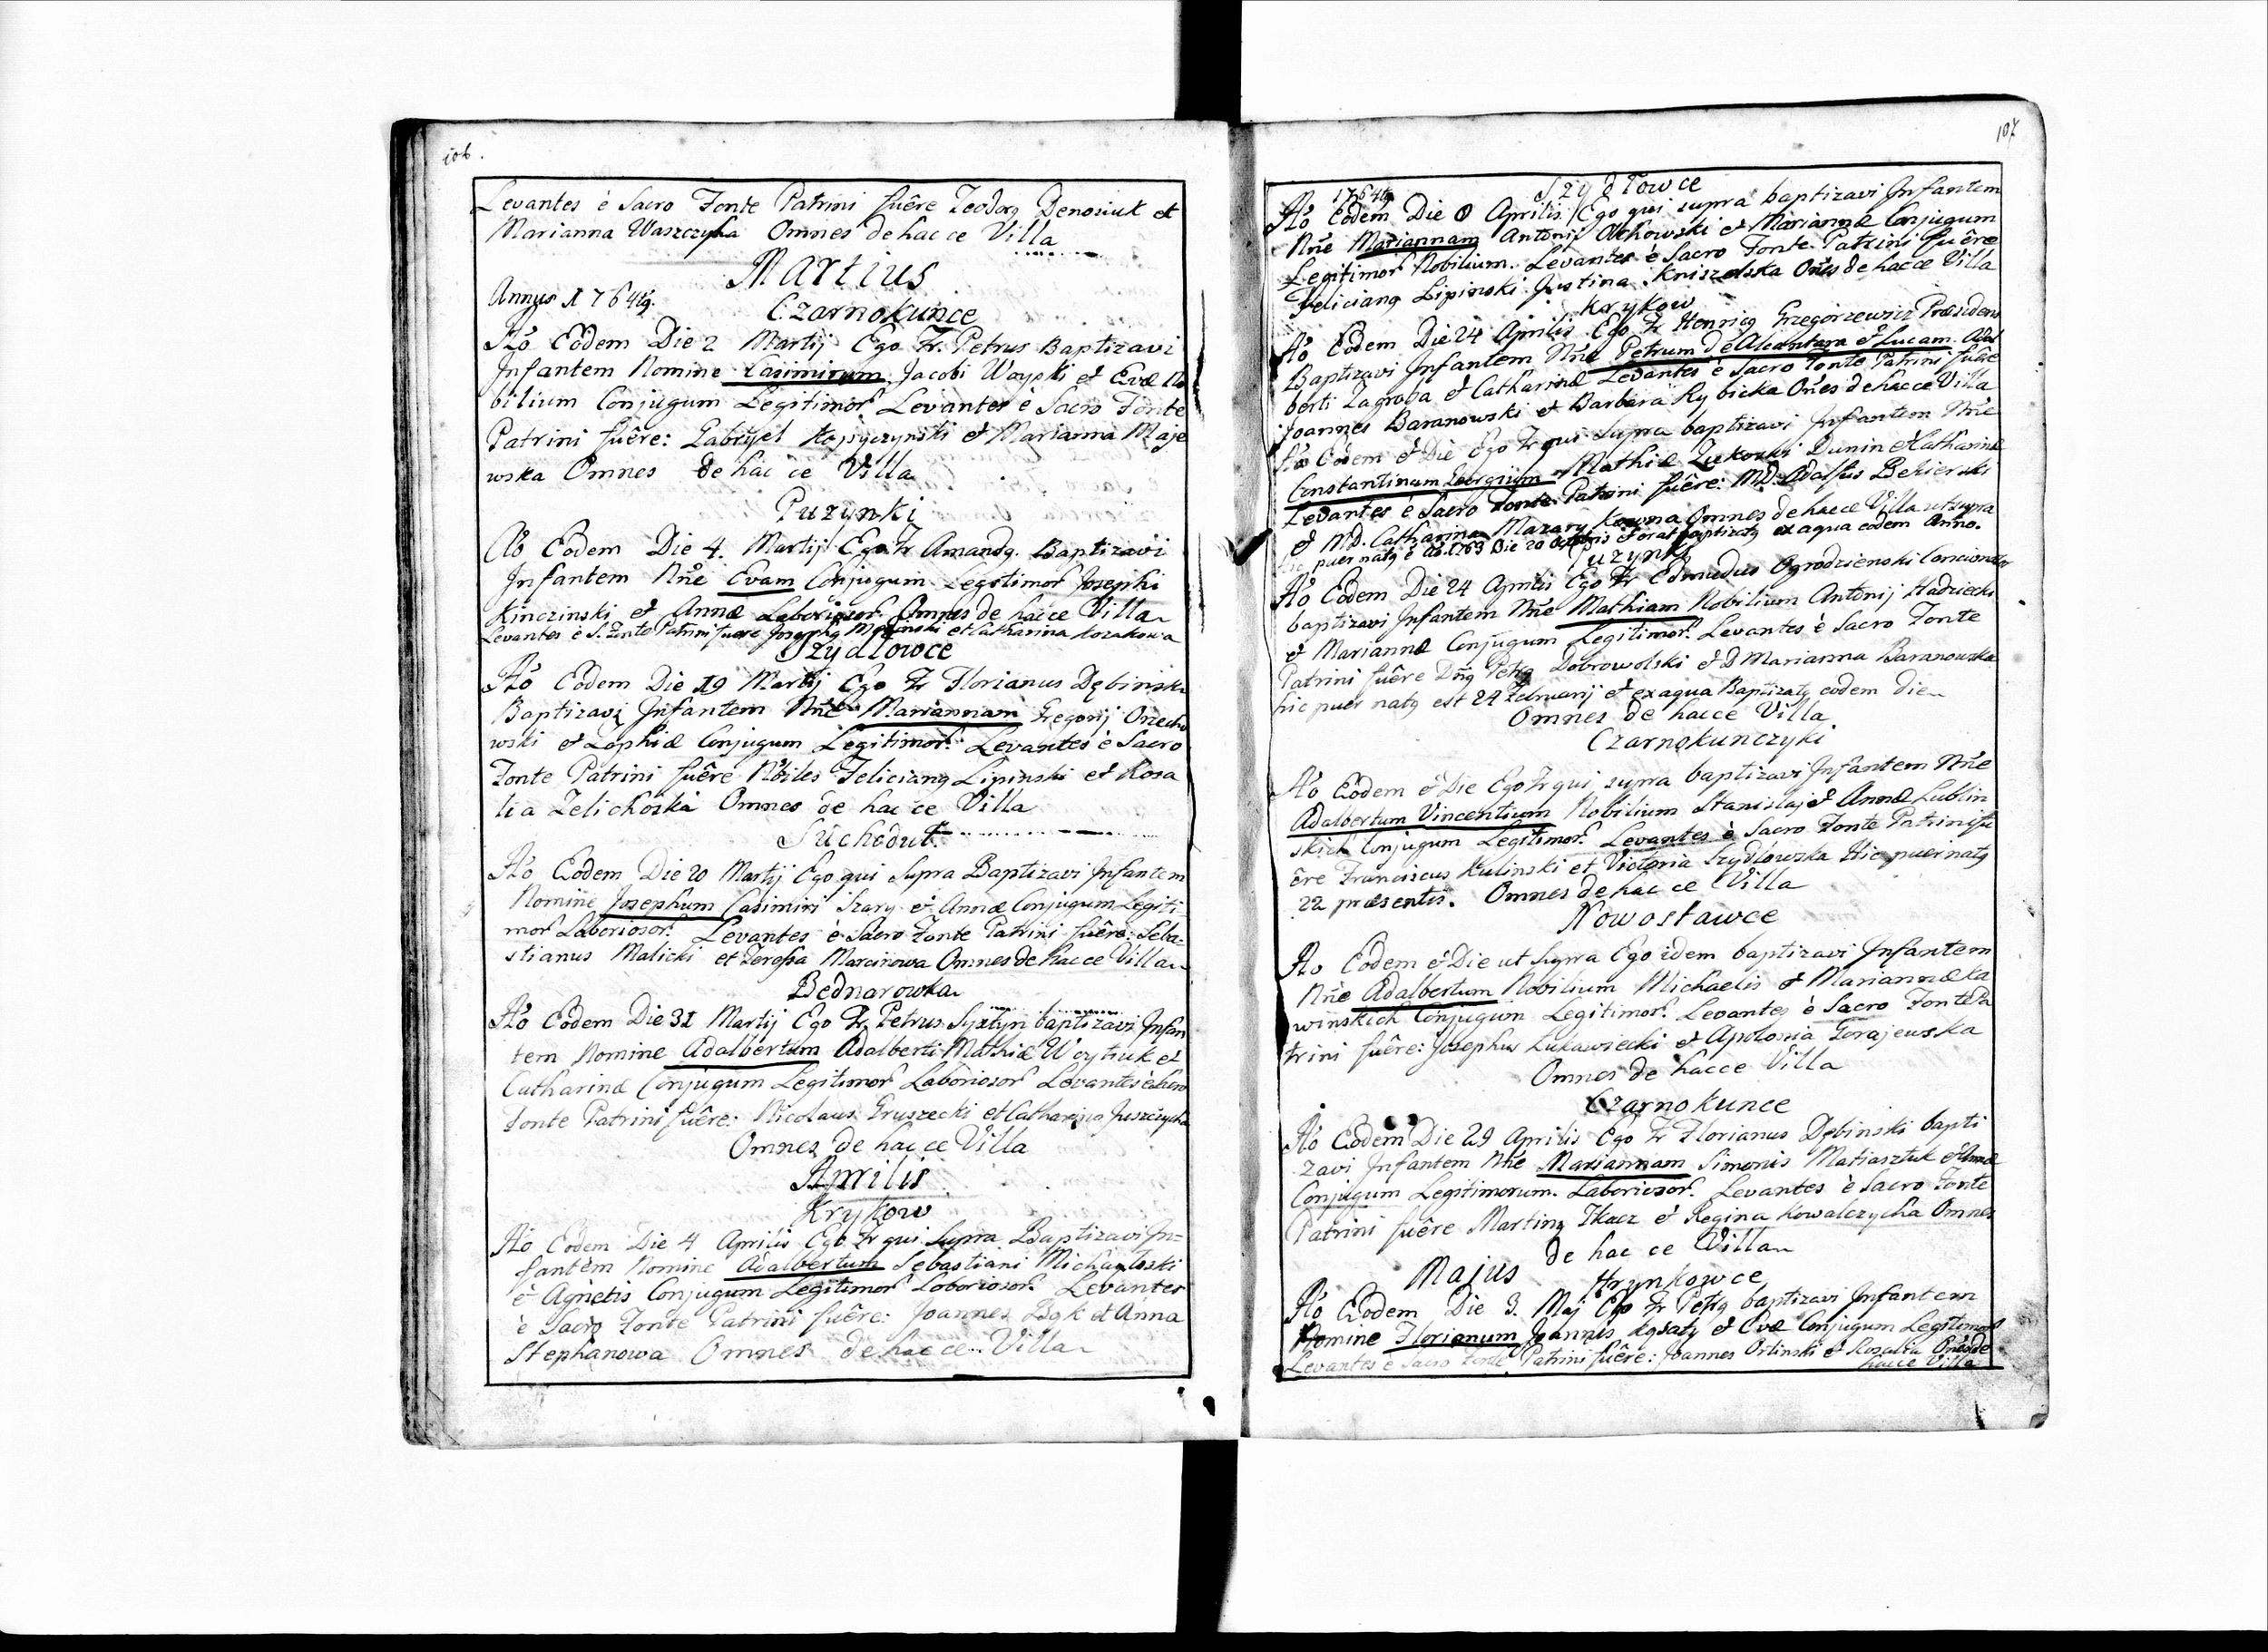 106.
Levantes è Sacro Fonte Patrini fuêre Teodorg Denosiuk et
Marianna Waszczyha Omnes de hac ce Villa
Martius
Annus 1764tg.
Czarnokunce
Ao Eodem Die 2 Martij Ego Fr. Petrus Baptizavi
Infantem Nomine Casimirum Jacobi Woyski et Evæ No
bilium Conjugum Legitimor Levantes è Sacro Fonte
Patrini fuêre: Gabryel Kopyczynski et Marianna Maje
wska Omnes de hac ce Villa
Puzynki
Ao Eodem Die 4. Martij Ego Fr Amandg. Baptizavi
Infantem Nñe Evam Conjugum Legitimor Josephi
Kinczinski et Annæ Laboriosor. Omnes de hac ce Villa
Levantes è S. Fonte Patrini fuere Josephg et Catharina Kozakowa
Szydlowce
Ao Eodem Die 19 Martij Ego Fr Florianus Dębinski
Baptizavi Infantem Nñe Mariannam Gregorij Orzecho
wski et Zophiæ Conjugum Legitimor. Levantes è Sacro
Fonte Patrini fuêre Nobiles Feliciang Lipinski et Rosa
lia Zelichoska Omnes de hac ce Villa
Suchodut
Ao Eodem Die 20 Martij Ego qui Supra Baptizavi Infantem
Nomine Josephum Casimiri Szary et Annæ Conjugum Legiti-
mor Laboriosor. Levantes è Sacro Fonte Patrini fuêre: Seba-
stianus Malicki et Teressa Marcinowa Omnes de hac ce Villa
Bednarowka
Ao Eodem Die 31 Martij Ego Fr Petrus Syxtyn baptizavi Infan
tem Nomine Adalbertum Adalberti Mathiæ Woytiuk et
Catharinæ Conjugum Legitimor Laboriosor Levantes è Sacro
Fonte Patrini fuêre: Nicolaus Gruszecki et Catharina Juszczycha
Omnes de hac ce Villa
Aprilis
Krykow
Ao Eodem Die 4 Aprilis Ego Fr qui Supra Baptizavi In-
fantem Nomine Adalbertum Sebastiani
è Agnetis Conjugum Legitimor Laboriosor. Levantes
è Sacro Fonte Patrini fuêre: Joannes Bąk et Anna
Stephanowa Omnes de hac ce Villa
107
Szydlowce
1764tg
Ao Eodem Die 8 Aprilis Ego qui supra baptizavi Infantem
Nñe Mariannam Antonij et Mariannæ Conjugum
Legitimor Nobilium. Levantes è Sacro Fonte Patrini fuêre
Feliciang Lipinski Justina Kniszelska Oñes de hac ce Villa
Krykow
Ao Eodem Die 24 Aprilis Ego Fr Henricg Grzegorzewicz Præsidens
Baptizavi Infantem Nñe Petrum de Alcantara et Lucam. Adal
berti Zagroba et Catharinæ Levantes è Sacro Fonte Patrini fuêre
Joannes Baranowski et Barbara Rybicka Oñes de hac ce Villa
Ao Eodem et Die Ego Fr qui Supra baptizavi Infantem Nñe
Constantinum Georgium Mathiæ Dunin et Catharinæ
Levantes è Sacro Fonte. Patrini fuêre: MD. Adalfus Bekierski
et MD. Catharina Omnes de hac ce Villa ut supra
hic puer natg è Ao. 1763 Die 20 et erat baptizatg ex aqua eodem Anno.
Puzynki
Ao Eodem Die 24 Aprilis Ego Fr Edmudus Ogrodzienski Concionator
baptizavi Infantem Nñe Mathiam Nobilium Antonij Hadziecki
et Mariannæ Conjugum Legitimor. Levantes è Sacro Fonte
Patrini fuêre Dñg Petrg Dobrowolski et D Marianna Baranowska
hic puer natg est 24 Februarij et ex aqua Baptizatg eodem die
Omnes de hac ce Villa
Czarnokunczyki
Ao Eodem et Die Ego Fr qui supra baptizavi Infantem Nñe
Adalbertum Vincentium Nobilium Stanislaj et Annæ Lublin
skich Conjugum Legitimor. Levantes è Sacro Fonte Patrini fu
êre Franciscus Kulinski et Victoria Szydlowska Hic puer natg
22 præsentis. Omnes de hac ce Villa
Nowostawce
Ao Eodem et Die ut Supra Ego idem baptizavi Infantem
Nñe Adalbertum Nobilium Michaelis et Mariannæ Ka
winskich Conjugum Legitimor. Levantes è Sacro Fonte Pa
trini fuêre: Josephus Lukawiecki et Apolonia Gorajewska
Omnes de hac ce Villa
Czarnokunce
Ao Eodem Die 29 Aprilis Ego Fr Florianus Dębinski bapti
zavi Infantem Nñe Mariannam Simonis Matiasztuk et Annæ
Conjugum Legitimorum. Laboriosor. Levantes è Sacro Fonte
Patrini fuêre Marting Tkacz et Regina Kowalczycha Omnes
de hac ce Villa
Majus
Hrynkowce
Ao Eodem Die 3. Maj Ego Fr Petrg baptizavi Infantem
Nomine Florianum Joannis et Evæ Conjugum Legitimor
Levantes è Sacro Fonte Patrini fuêre: Joannes Orlinski et Rosalia Oñes de
hac ce Villa